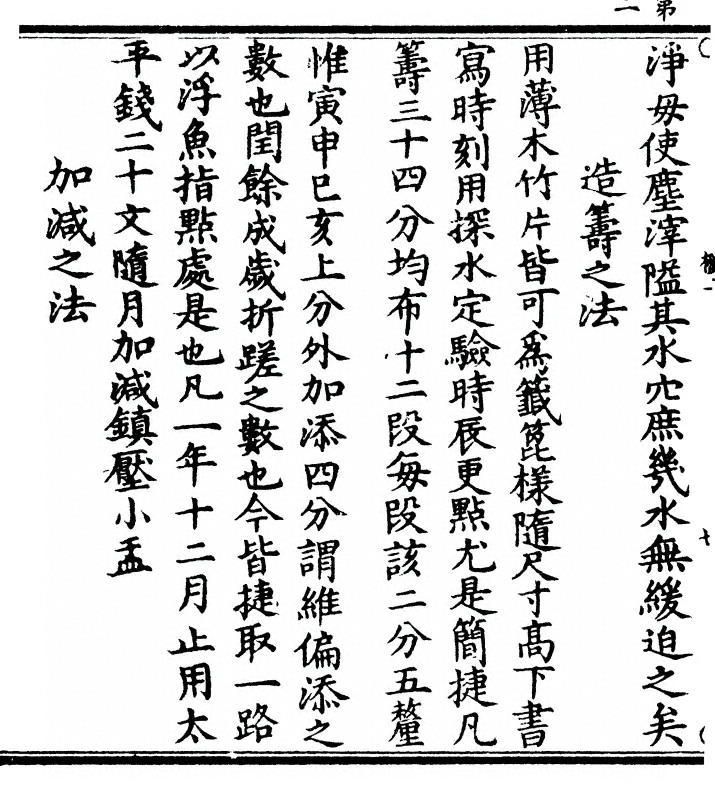 淨毋使塵滓隘其水穴庶幾水無緩迫之矣
造籌之法
用薄木竹片皆可爲籤箆樣隨尺寸高下書
寫時刻用探水定驗時辰更點尤是簡捷凡
籌三十四分均布十二段每段該二分五釐
惟寅申巳亥上分外加添四分謂維偏添之
數也閏餘成歲折蹉之數也今皆捷取一路
以浮魚指點處是也凡一年十二月止用太
平錢二十文隨月加減鎮壓小盂
加減之法